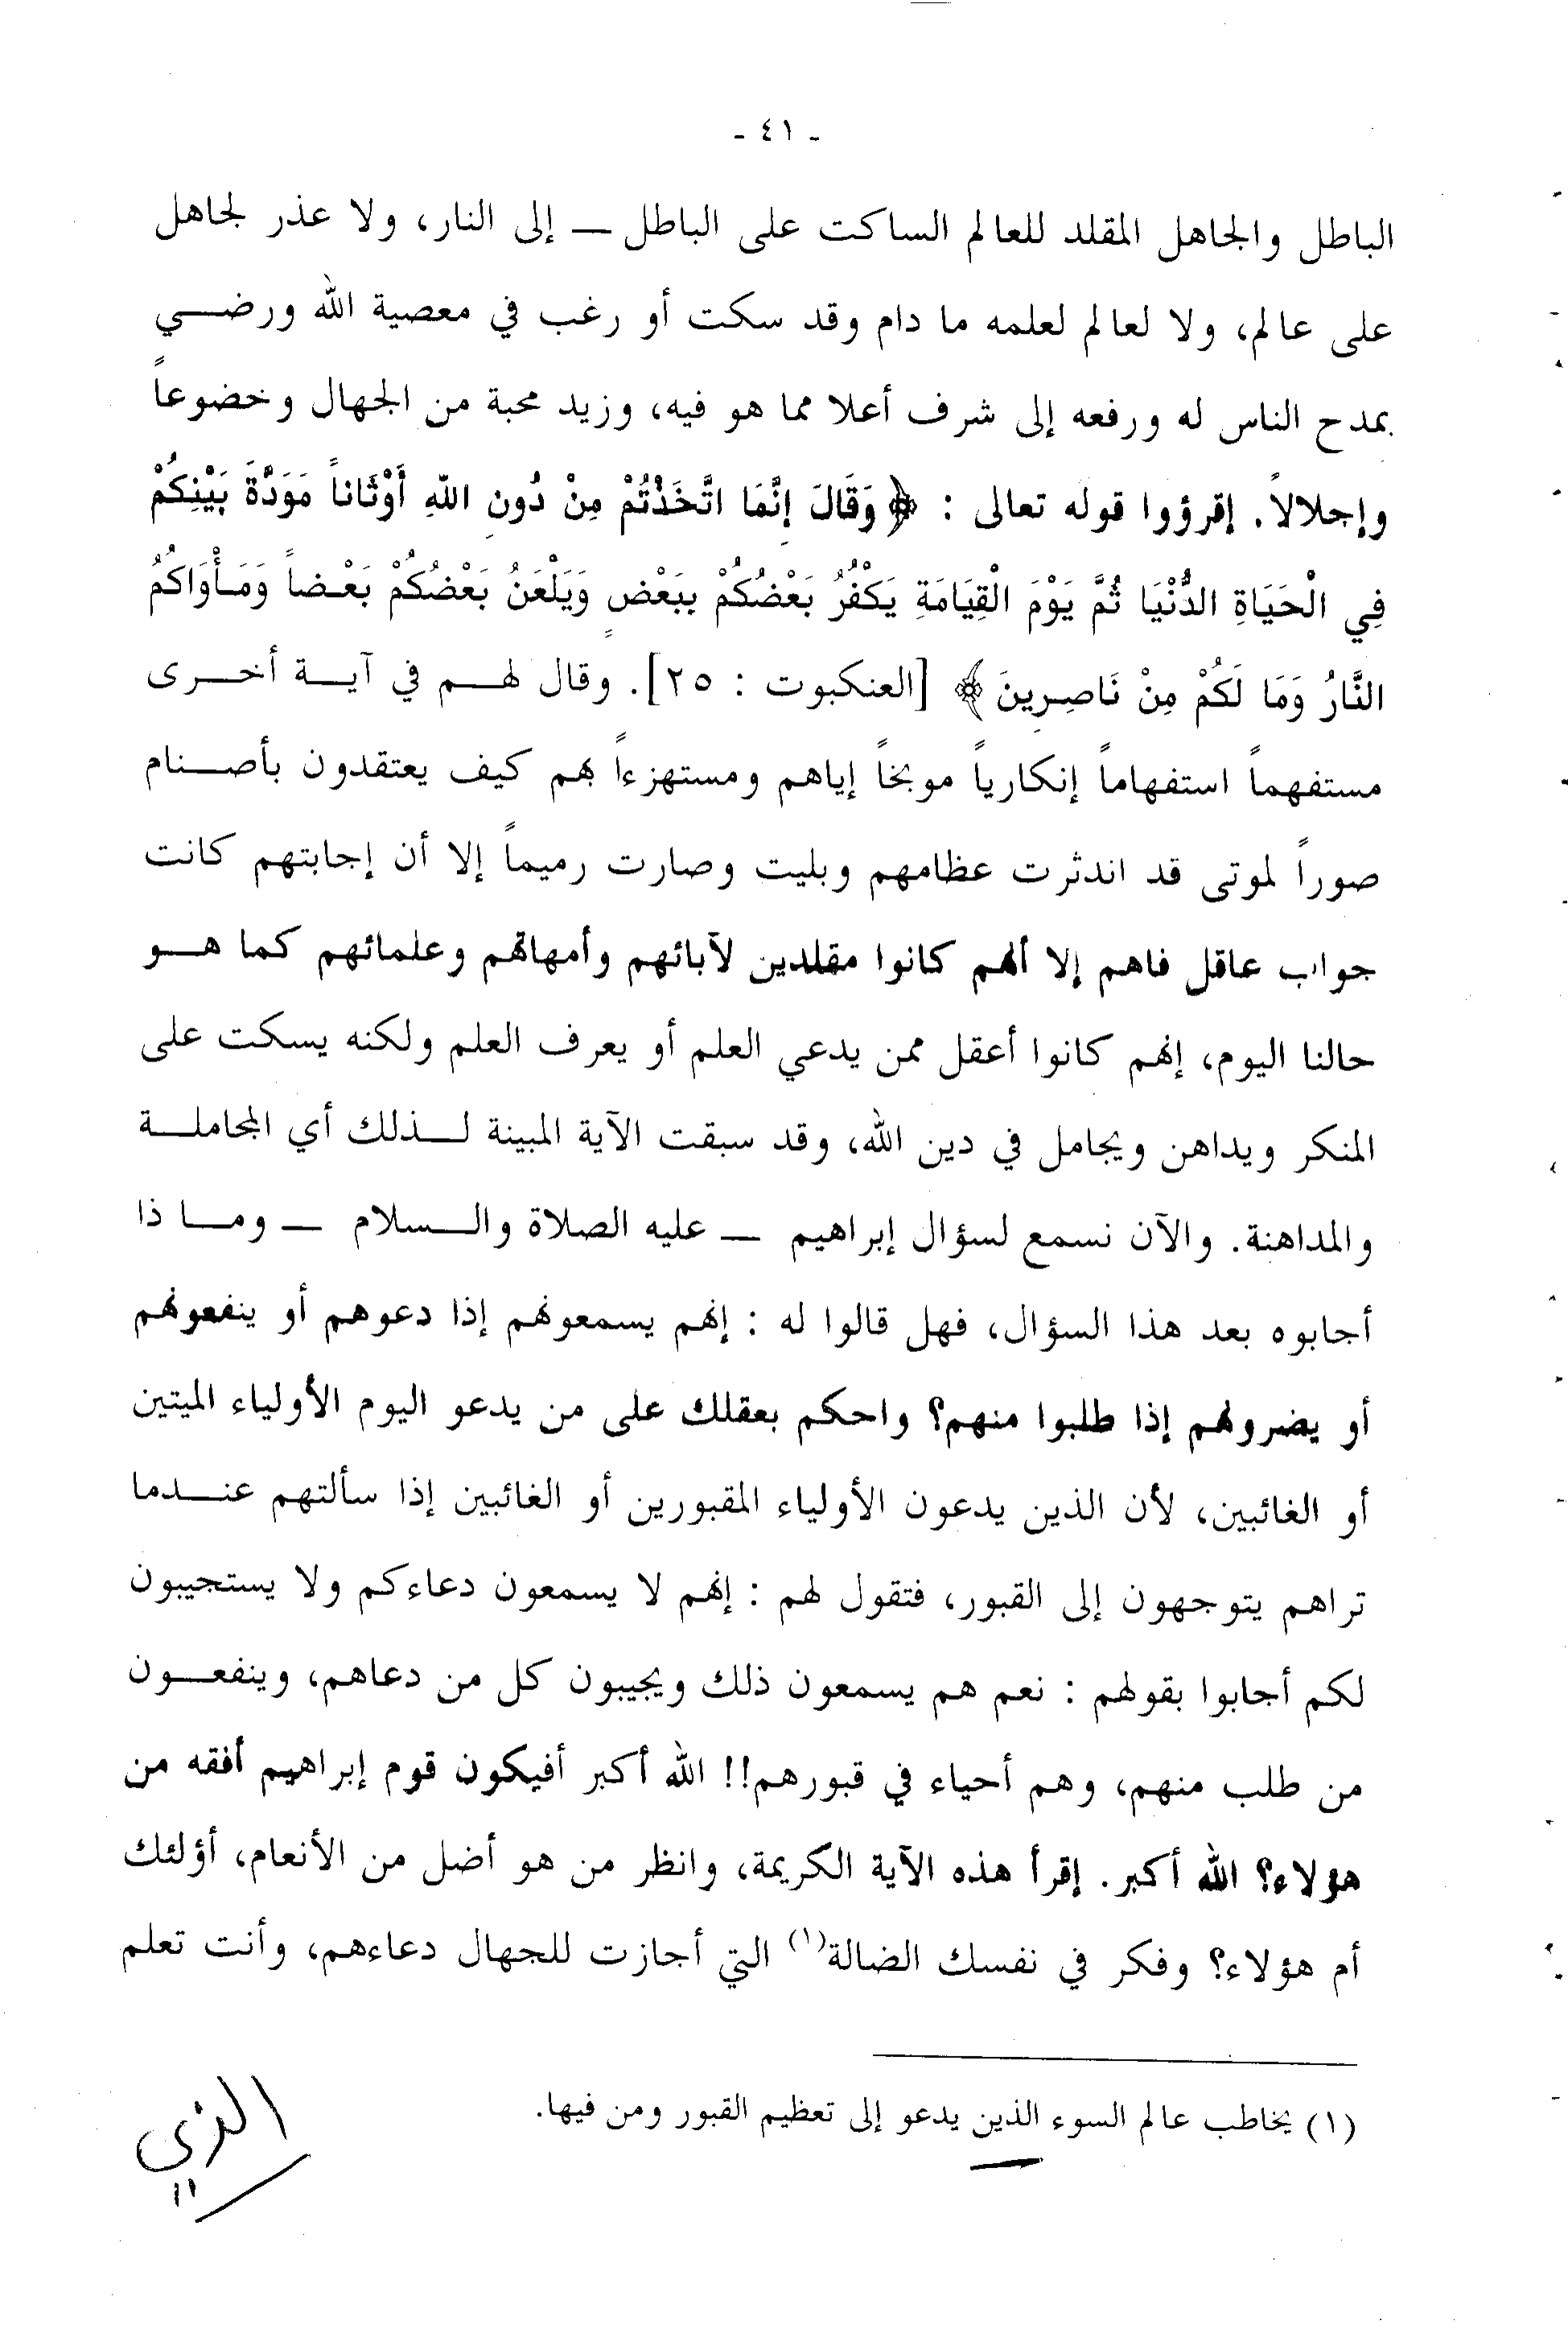 - ٤١ -
الباطل والجاهل المقلد للعالم الساكت على الباطل — إلى النار، ولا عذر لجاهل
على عالم، ولا لعالم لعلمه ما دام وقد سكت أو رغب في معصية الله ورضي
بمدح الناس له ورفعه إلى شرف أعلا مما هو فيه، وزيد محبة من الجهال وخضوعاً
وإجلالاً. إقرؤوا قوله تعالى : ﴿ وَقَالَ إِنَّمَا اتَّخَذْتُمْ مِنْ دُونِ اللَّهِ أَوْثَاناً مَوَدَّةَ بَيْنِكُمْ
فِي الْحَيَاةِ الدُّنْيَا ثُمَّ يَوْمَ الْقِيَامَةِ يَكْفُرُ بَعْضُكُمْ بِبَعْضٍ وَيَلْعَنُ بَعْضُكُمْ بَعْضاً وَمَأْوَاكُمُ
النَّارُ وَمَا لَكُمْ مِنْ نَاصِرِينَ ﴾ [العنكبوت : ٢٥]. وقال لهم في آية أخرى
مستفهماً استفهاماً إنكارياً موبخاً إياهم ومستهزءاً بهم كيف يعتقدون بأصنام
صوراً لموتى قد اندثرت عظامهم وبليت وصارت رميماً إلا أن إجابتهم كانت
جواب عاقل فاهم إلا أنهم كانوا مقلدين لآبائهم وأمهاتهم وعلمائهم كما هو
حالنا اليوم، إنهم كانوا أعقل ممن يدعي العلم أو يعرف العلم ولكنه يسكت على
المنكر ويداهن ويجامل في دين الله، وقد سبقت الآية المبينة لذلك أي المجاملة
والمداهنة. والآن نسمع لسؤال إبراهيم — عليه الصلاة والسلام — وما ذا
أجابوه بعد هذا السؤال، فهل قالوا له : إنهم يسمعونهم إذا دعوهم أو ينفعونهم
أو يضرونهم إذا طلبوا منهم؟ واحكم بعقلك على من يدعو اليوم الأولياء الميتين
أو الغائبين، لأن الذين يدعون الأولياء المقبورين أو الغائبين إذا سألتهم عندما
تراهم يتوجهون إلى القبور، فتقول لهم : إنهم لا يسمعون دعاءكم ولا يستجيبون
لكم أجابوا بقولهم : نعم هم يسمعون ذلك ويجيبون كل من دعاهم، وينفعون
من طلب منهم، وهم أحياء في قبورهم!! الله أكبر أفيكون قوم إبراهيم أفقه من
هؤلاء؟ الله أكبر. إقرأ هذه الآية الكريمة، وانظر من هو أضل من الأنعام، أؤلئك
أم هؤلاء؟ وفكر في نفسك الضالة(١) التي أجازت للجهال دعاءهم، وأنت تعلم
(١) يخاطب عالم السوء الذين يدعو إلى تعظيم القبور ومن فيها.
الذي